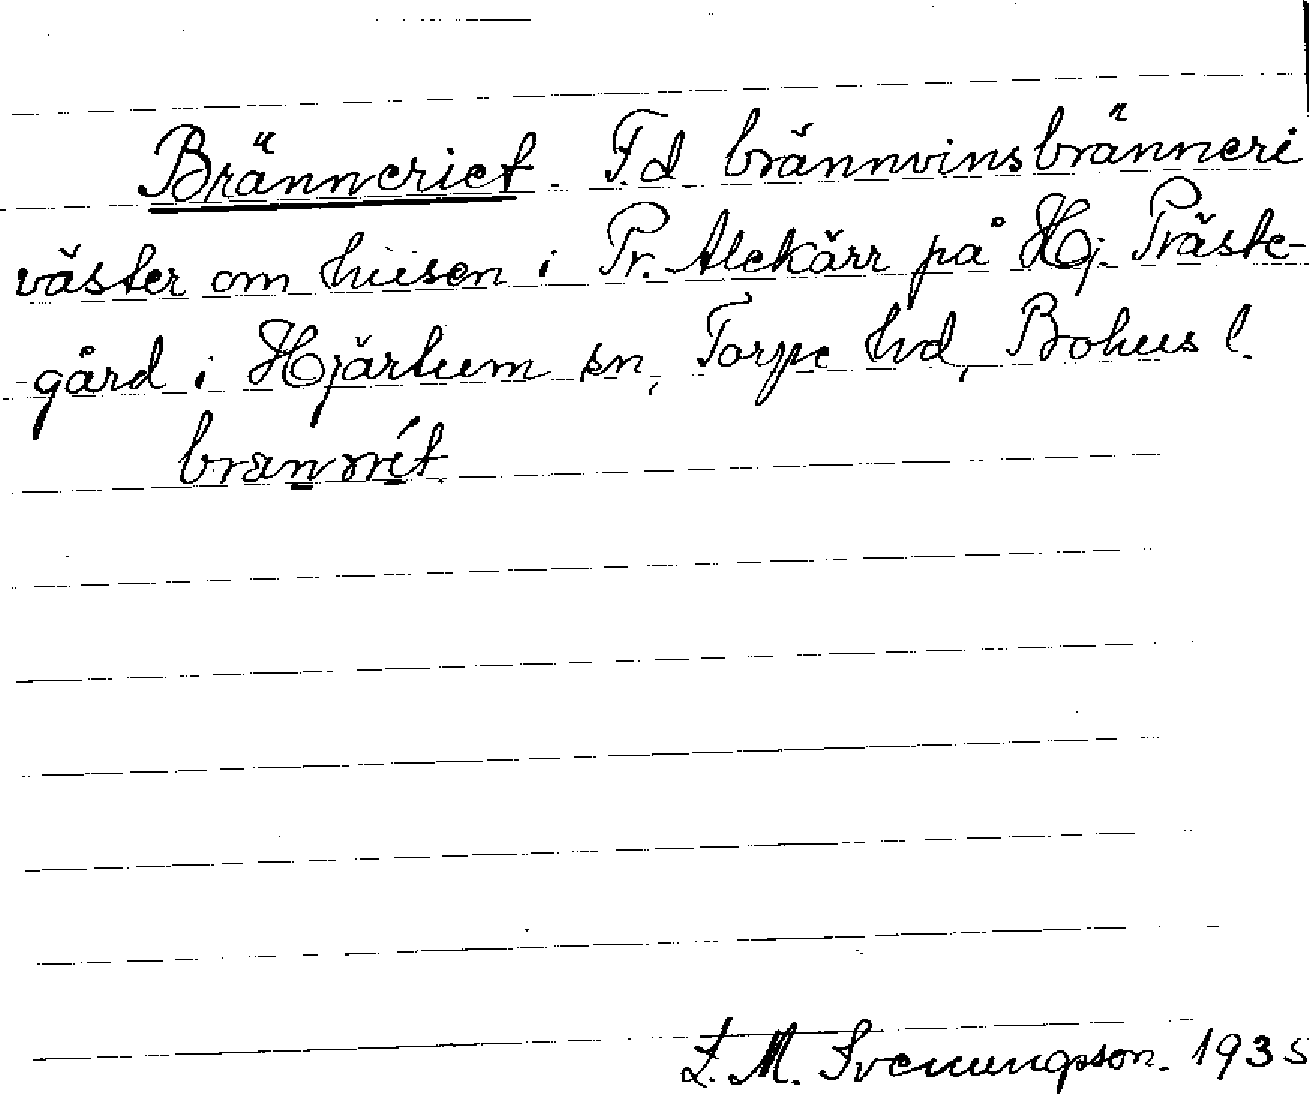 Bränneriet. F.d. brännvinsbränneri
väster om husen i Pr. Alekärr på Hj. Präste-
gård i Hjärtum sn, Torpe hd, Bohus l.
L. M. Svenungsson. 1935